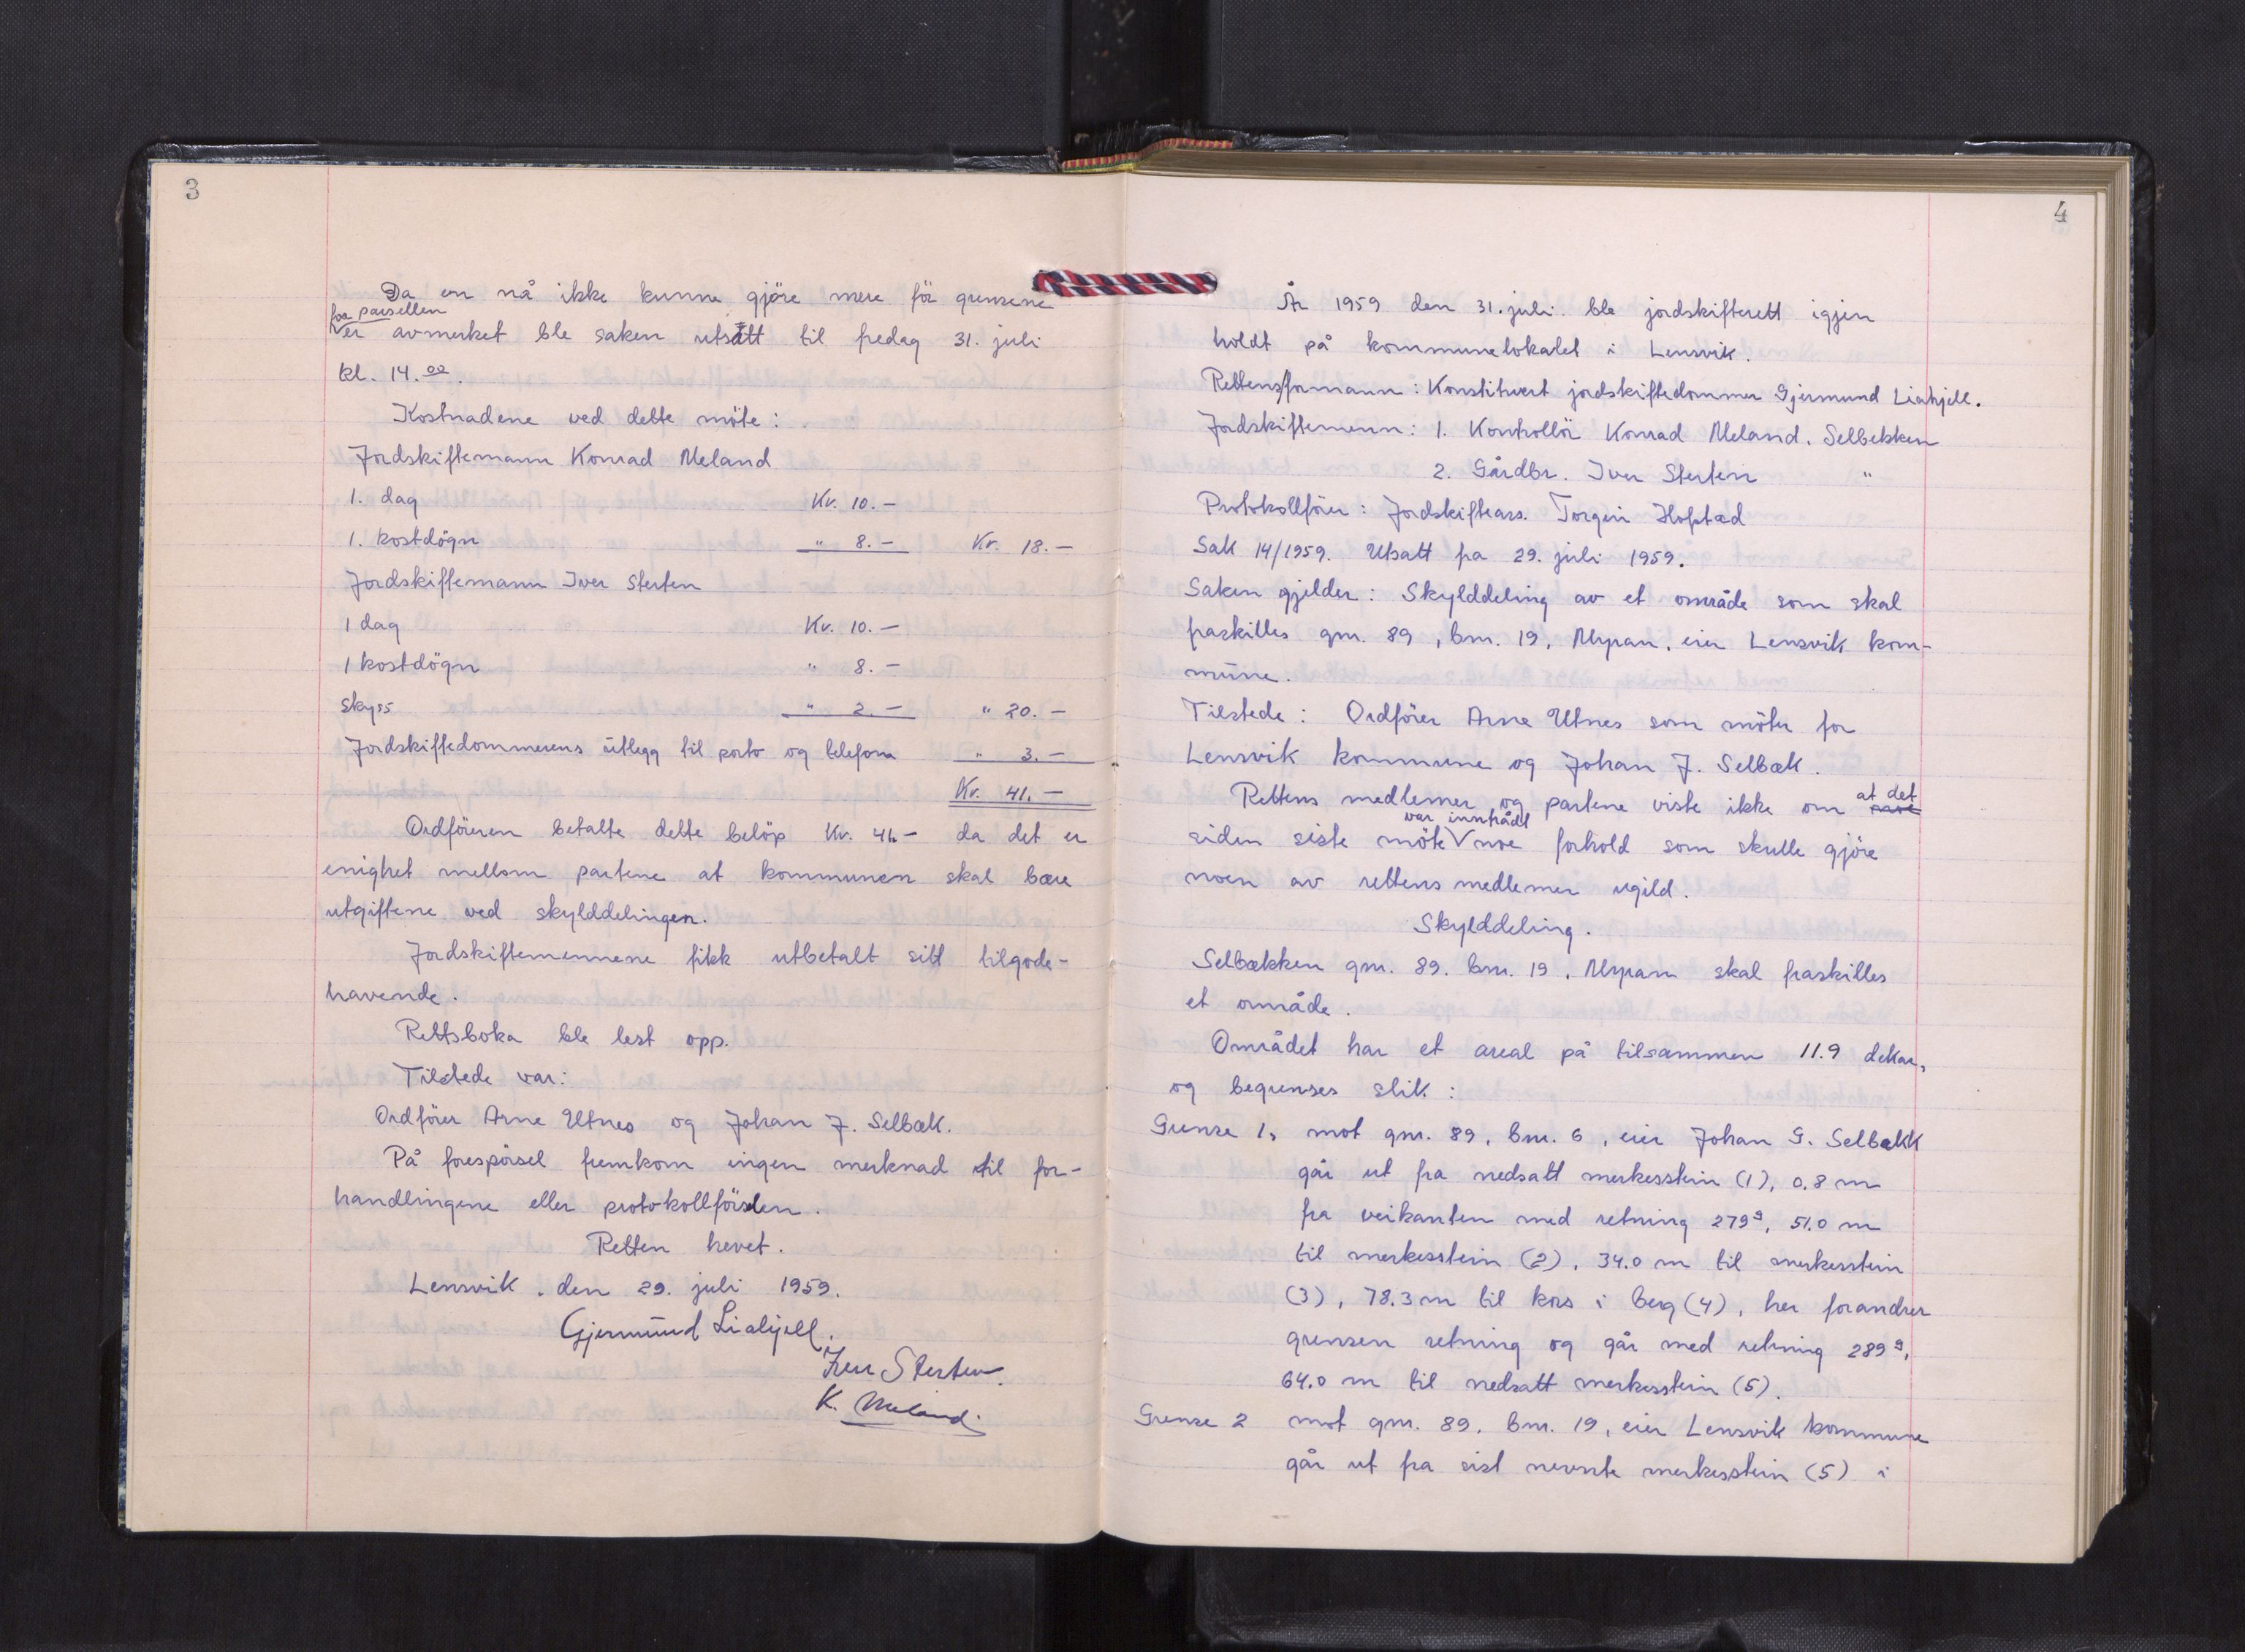 3
Da en nå ikke kunne gjöre mere för grensene
for parsellen
er avmerket ble saken utsatt til fredag 31. juli
kl. 14.00.
Kostnadene ved dette möte:
Jordskiftemann Konrad Meland
1. dag Kr. 10.-
1. kostdögn " 8.- Kr. 18.-
Jordskiftemann Iver Sterten
1 dag Kr. 10.-
1 kostdögn " 8.-
Skyss " 2.- " 20.-
Jordskiftedommerens utlegg til porto og telefon " 3.-
Kr. 41.-
Ordföreren betalte dette belöp Kr. 41.- da det er
enighet mellom partene at kommunen skal bære
utgiftene ved skylddelingen.
Jordskiftemennene fikk utbetalt sitt tilgode-
havende.
Rettsboka ble lest opp.
Tilstede var:
Ordförer Arne Utnes og Johan J. Selbæk.
På forespörsel fremkom ingen merknad til for-
handlingene eller protokollförslen.
Retten hevet.
Lensvik, den 29. juli 1959.
Gjermund Liahjell.
Iver Sterten.
K. Meland.
4
År 1959 den 31. juli ble jordskifterett igjen
holdt på kommunelokalet i Lensvik.
Rettens formann: Konstituert jordskiftedommer Gjermund Liahjell.
Jordskiftemenn: 1. Kontrollör Konrad Meland, Selbekken
2. Gårdbr. Iver Sterten "
Protokollförer: Jordskifteass. Torgeir Hofstad
Sak 14/1959. Utsatt fra 29. juli 1959.
Saken gjelder: Skylddeling av et område som skal
fraskilles gnr. 89, bnr. 19, Myran, eier Lensvik kom-
mune.
Tilstede: Ordförer Arne Utnes som möter for
Lensvik kommune og Johan J. Selbæk.
Rettens medlemer og partene viste ikke om at det
var inntrådt
siden siste möte noe forhold som skulle gjöre
noen av rettens medlemer ugild.
Skylddeling.
Selbækken gnr. 89. bnr. 19, Myran skal fraskilles
et område.
Området har et areal på tilsammen 11.9 dekar,
og begrenses slik:
Grense 1, mot gnr. 89, bnr. 6, eier Johan G. Selbækk
går ut fra nedsatt merkesstein (1), 0.8 m
fra veikanten med retning 279g, 51.0 m
til merkesstein (2), 34.0 m til merkesstein
(3), 78.3 m til kors i berg (4), her forandrer
grensen retning og går med retning 289g,
64.0 m til nedsatt merkesstein (5).
Grense 2 mot gnr. 89, bnr. 19, eier Lensvik kommune
går ut fra sist nevnte merkesstein (5) i